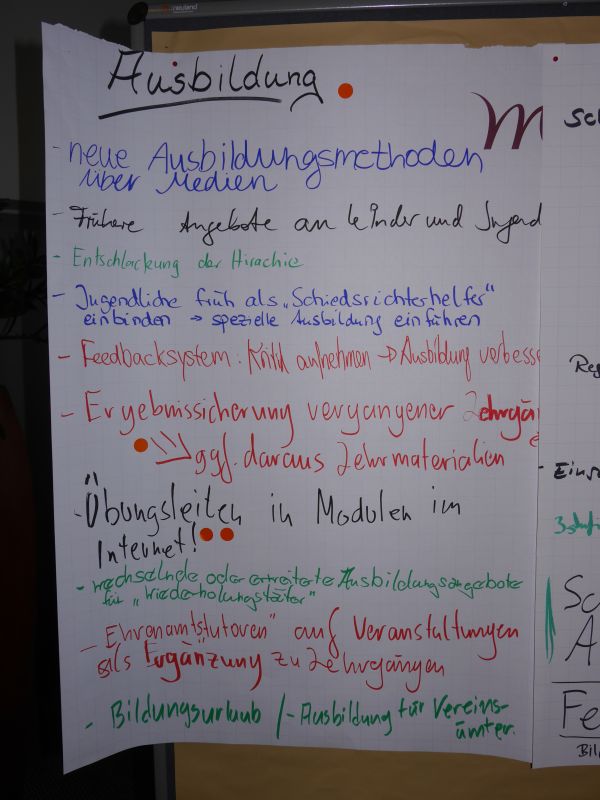 neuland
Ausbildung
M
- neue Ausbildungsmethoden
über Medien
- Frühere Angebote an Kinder und Jugend
- Entschlackung der Hirachie
- Jugendliche früh als „Schiedsrichterhelfer"
einbinden → spezielle Ausbildung einführen
- Feedbacksystem: Kritik aufnehmen → Ausbildung verbesse
- Ergebnissicherung vergangener Lehrgän
ggf. daraus Lehrmaterialien
- Übungsleiten in Modulen im
Internet!
- wechselnde oder erweiterte Ausbildungsangebote
für „Wiederholungstäter"
- Ehrenamtstutoren" auf Veranstaltungen
als Ergänzung zu Lehrgängen
- Bildungsurlaub /- Ausbildung für Vereins-
ämter.
Sch
Reg
Eins
Sc
A
Fe
Bil